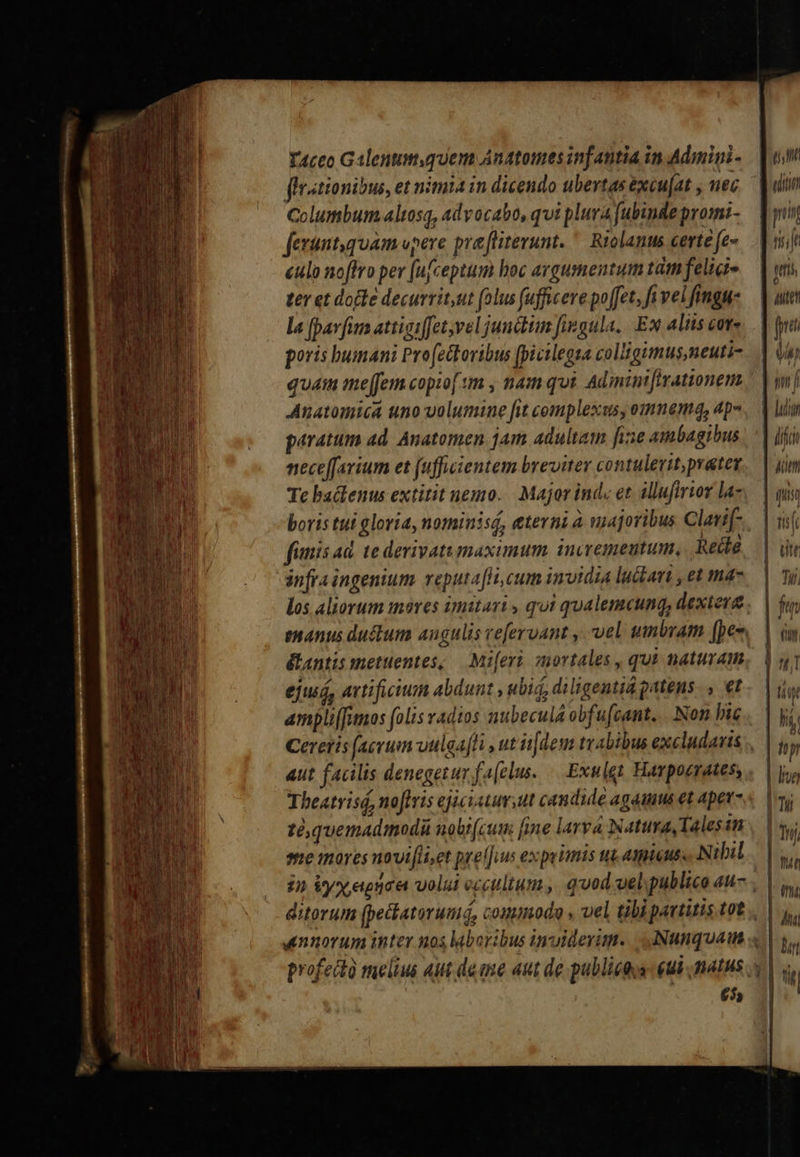 Taceo Galenum, quem Anatomes infantia in Admini-
ſtrationibus, et nimia in dicendo ubertas excuſat, nec
Columbum aliosq́, advocabo, qui plura ſubinde promi-
ſerunt, quàm opere præſtiterunt. Riolanus certè ſe-
culo noſtro per ſuſceptum hoc argumentum tàm felici-
ter et doctè decurrit, ut ſolus ſufficere poſſet, ſi vel ſingu-
la ſparſim attigiſſet, vel junctim ſingula. Ex aliis cor-
poris humani Proſectoribus ſpicilegia colligimus, neuti-
quam meſſem copioſam, nam qui Adminiſtrationem
Anatomicâ uno volumine ſit complexus, omnemq́, ap-
paratum ad Anatomen jam adultam ſine ambagibus
neceſſarium et ſufficientem breviter contulerit, præter
Te hactenus extitit nemo. Major indè et illuſtrior la-
boris tui gloria, nominisq́, æterni à majoribus Clariſ-
ſimis ad te derivati maximum incrementum. Rectè
infra ingenium reputaſti, cum invidia luctari, et ma-
los aliorum mores imitari, qui qualemcunq́, dexteræ
manus ductum angulis reſervant, vel umbram ſpe-
ctantis metuentes, Miſeri mortales, qui naturam
ejusq́, artificium abdunt, ubiq́, diligentiâ patens, et
ampliſſimos ſolis radios nubeculâ obfuſcant. Non hic
Cereris ſacrum vulgaſti, ut iiſdem trabibus excludaris,
aut facilis denegetur faſelus. Exulet Harpocrates,
Theatrisq́, noſtris ejiciatur, ut candidè agamus et aper-
tè, quemadmodū nobiſcum ſine larvâ Natura. Tales in
me mores noviſti, et preſſius exprimis ut amicus. Nihil
in ἐγχειρήσει volui occultum, quod vel publico au-
ditorum ſpectatorumq́, commodo, vel tibi partitis tot
annorum inter nos laboribus inviderim. Nunquam
profectò melius aut de me aut de publico, cui natus
es,